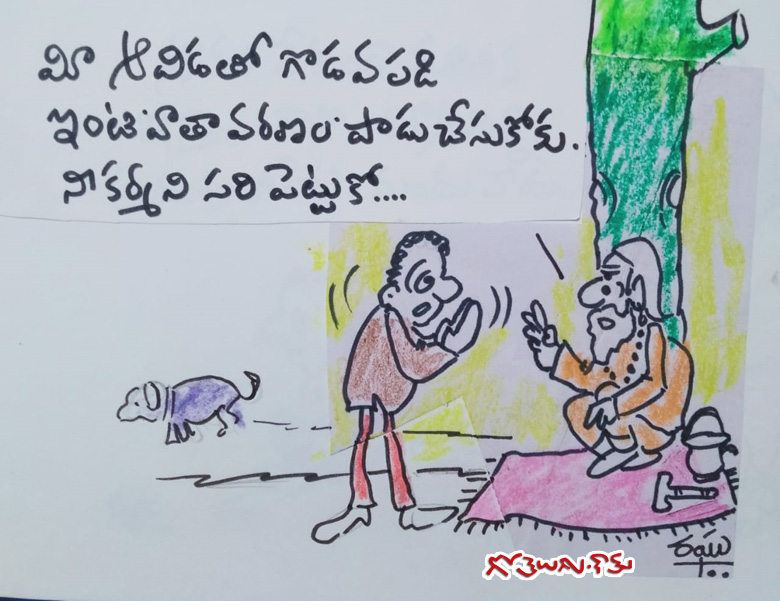 మీ ఆవిడతో గొడవపడి
ఇంటి వాతావరణం పాడుచేసుకోకు.
నీ కర్మని సరిపెట్టుకో....
గోతెలుగు.కామ్